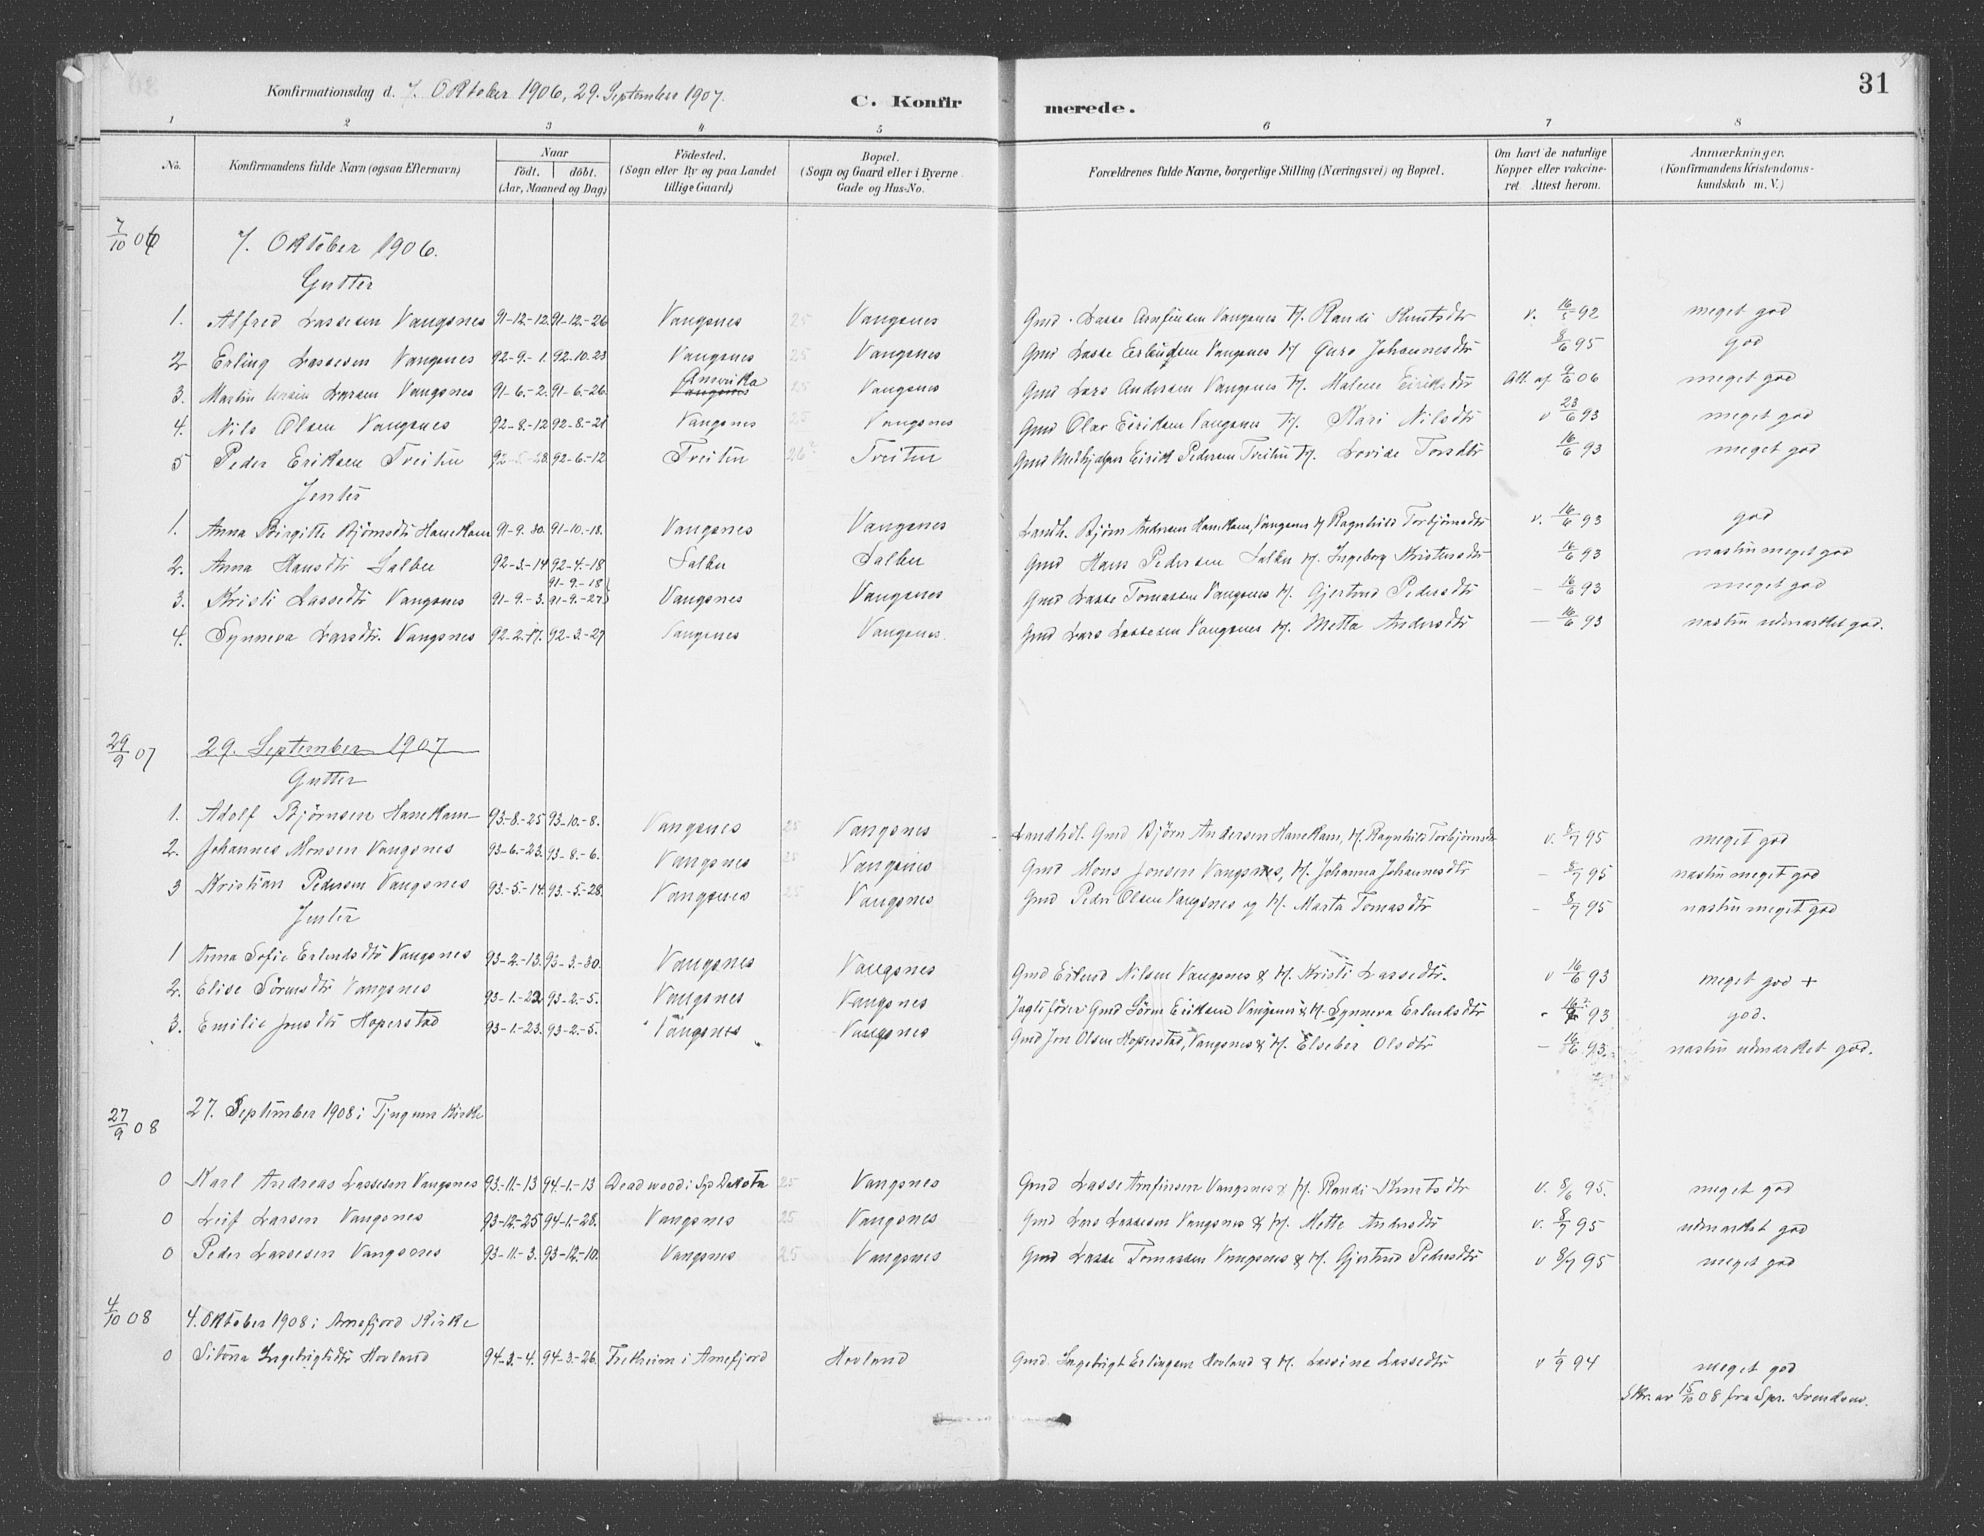 Konfirmationsdag d. 7. Oktober 1906, 29. September 1907.
C. Konfirmerede.
31
1 2 3 4 5 6 7 8
No. Konfirmandens fulde Navn (ogsaa Efternavn) Naar født. døbt. (Aar, Maaned og Dag) Fødested. (Sogn eller By og paa Landet tillige Gaard) Bopæl. (Sogn og Gaard eller i Byerne Gade og Hus-No. Forældrenes fulde Navne, borgerlige Stilling (Næringsvei) og Bopæl. Om havt de naturlige Kopper eller vakcineret. Attest herom. Anmærkninger. (Konfirmandens Kristendomskundskab m. V.)
7/10 06 7. Oktober 1906.
Gutter
1. Alfred Lassesen Vangsnes 91-12-12 91-12-26 Vangsnes 25 Vangsnes Gmd. Lasse Arnfinsen Vangsnes & H. Randi Knutsdtr v. 92 meget god
2 Erling Lassesen Vangsnes 92-9-1. 92-10-23 Vangsnes 25 Vangsnes Gmd Lasse Erlindsen Vangsnes & H Guro Johannesdtr 8/6 95 god
3. Martin Larsen Vangsnes 91-6-2. 91-6-26. Amerika Vangsnes 25 Vangsnes Gmd Lars Andersen Vangsnes & H. Malene Eiriksdtr Att. af 9/6 06 meget god
4. Nils Olsen Vangsnes 92-8-12 92-8-21 Vangsnes 25 Vangsnes Gmd Olav Eiriksen Vangsnes & H. Kari Nilsdtr v 23/6 93 meget god
5 Peder Eriksen Treitin 92-5-28. 92-6-12 Treitin Treitin Gmd Eirik Pedersen Treitin & H. Lovise Torsdtr 16/6 93 meget god
Jenter
1. Anna Birgitte Bjørnsdtr Hanekam 91-9-30. 91-10-18. Vangsnes Vangsnes Landh. Bjørn Andersen Hanekam, Vangsnes & H Ragnhild Torbjørnsdtr v. 16/6 93 god
2. Anna Hansdtr Salbu 92-3-14 92-4-18 Salbu Salbu Gmd Hans Pedersen Salbu & H. Ingeborg Kristensdtr 16/6 93 næstin meget god
3. Kristi Lassedtr Vangsnes 91-9-3. 91-9-18 91-9-27 Vangsnes Vangsnes Gmd Lasse Tomassen Vangsnes & H. Gjertrud Pedersdtr - 16/6 93 meget god
4. Synneva Larsdtr. Vangsnes 92-2-17. 92-3-27 Vangsnes Vangsnes. Gmd Lars Lassesen Vangsnes & H. Metta Andersdtr - 16/6 93 næstin udmærket god.
29/9 07 29. September 1907
Gutter
1. Adolf Bjørnsen Hanekam 93-8-25 93-10-8. Vangsnes 25 Vangsnes Landhdl. Gmd Bjørn Andersen Hanekam, & H. Ragnhild Torbjørnsdtr v. 8/7 95 meget god
2. Johannes Monsen Vangsnes 93-6-23. 93-8-6. Vangsnes 25 Vangsnes Gmd Mons Jonsen Vangsnes, & H. Johanna Johannesdtr - 8/7 95 næstin meget god
3 Kristian Pedersen Vangsnes 93-5-14. 93-5-28. Vangsnes 25 Vangsnes Gmd Peder Olsen Vangsnes og H. Marta Tomasdtr - 8/7 95 næstin meget god
Jenter
1 Anna Sofie Erlendsdtr Vangsnes 93-2-13. 93-3-30. Vangsnes Vangsnes Gmd Erlend Nilsen Vangsnes & H. Kristi Lassedtr. v 16/6 93 meget god +
2. Elise Sørensdtr Vangsnes 93-1-22 93-2-5. Vangsnes Vangsnes Gmd Søren Eriksen Vangsnes & H. Synneva Erlendsdtr 93 god.
3. Emilie Jonsdtr Hoperstad 93-1-23. 93-2-5. Vangsnes Vangsnes Gmd Jon Olsen Hoperstad, Vangsnes & H. Elseber Olsdtr - 16/6 93. næstin udmærket god.
27/9 08 27. September 1908 i Tjugum Kirke
0 Karl Andreas Lassesen Vangsnes 93-11-13 94-1-13 Deadwood i Syd Dakota 25 Vangsnes Gmd Lasse Arnfinsen Vangsnes & H. Randi Knutsdtr v. 8/6 95. meget god
0 Leif Larsen Vangsnes 93-12-25 94-1-28. Vangsnes 25 Vangsnes Gmd Lars Lassesen Vangsnes & H. Mette Andersdtr v. 8/7 95 udmærket god
0 Peder Lassesen Vangsnes 93-11-3. 93-12-10. Vangsnes 25 Vangsnes Gmd Lasse Tomassen Vangsnes & H. Gjertrud Pedersdtr v 8/7 95 meget god
4/10 08 4. Oktober 1908 i Arnefjord Kirke
0 Ingebrigtsdtr Hovland 94-3-4. 94-3-26. Tretheim i Arnefjord Hovland Gmd. Ingebrigt Erlingsen Hovland & H. Lassine Lassedtr v 1/9 94 meget god
Skr. av 15/10 08 fra Spr. Svendsen.